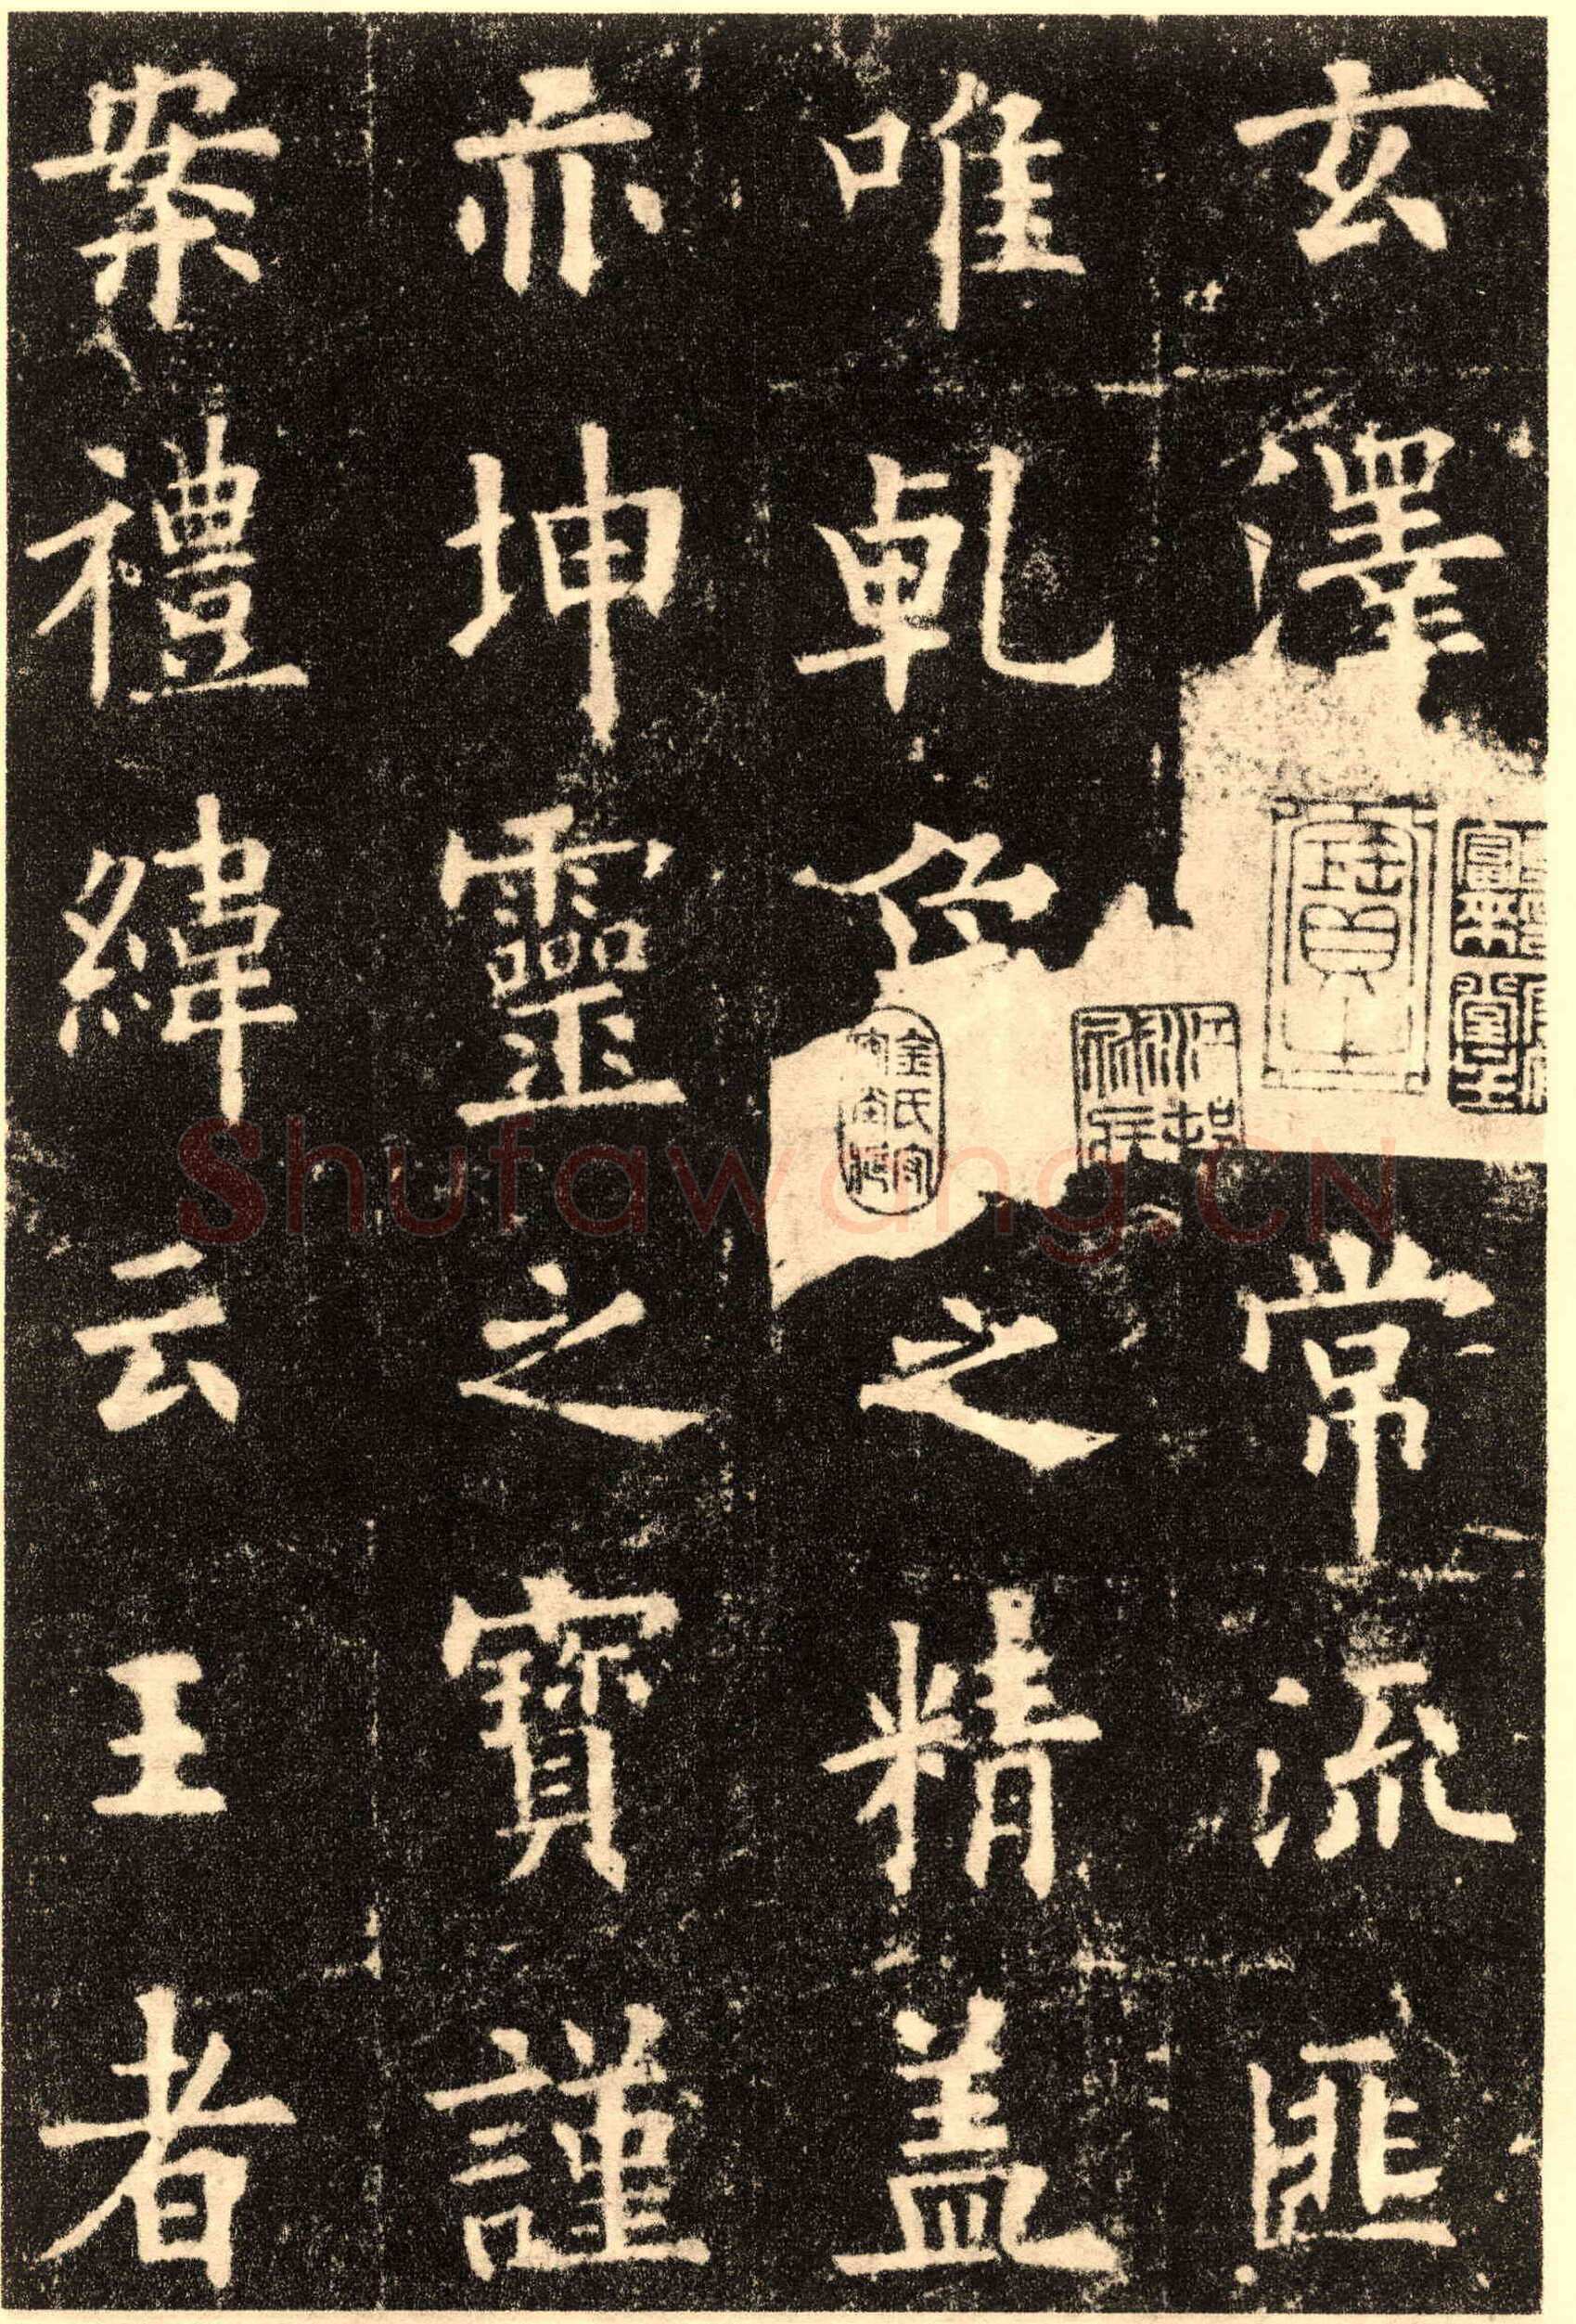 玄澤常流匪
唯乹象之精盖
亦坤靈之寶謹
案禮緯云王者
Shufawang.CN